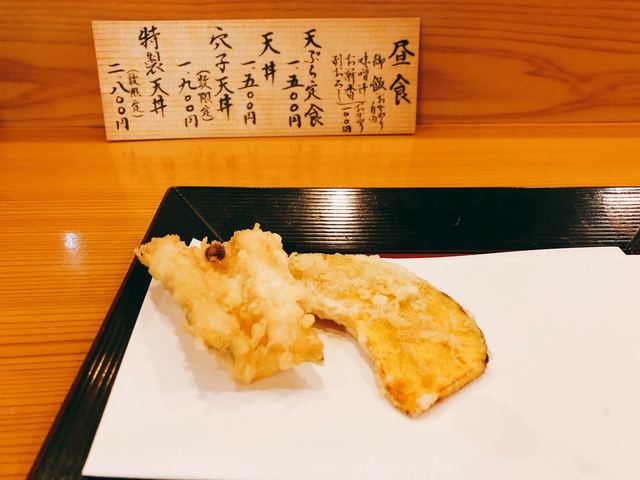 昼食
御飯 おかわり自由
味噌汁
お新香 おかわり
割おろし 一〇〇円
天ぷら定食
一.五〇〇円
天丼
一.五〇〇円
穴子天丼
(数限定)
一.九〇〇円
特製天丼
(数限定)
二.八〇〇円